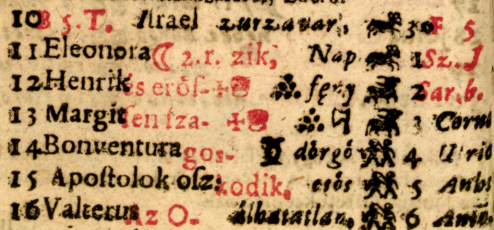 10 B 5. T. Israel zurzavar, 30 F 5
11 Eleonora ☾ 2. r. zik, Nap 1 Sz. J
12 Henrik és erös- fény 2 Sar. b.
13 Margit fen ſza- 3 Cornel
14 Bonventura gos- dörgö 4
15 Apoſtolok oſz: kodik, esös 5
16 Valterus Az O- álhatatlan, 6